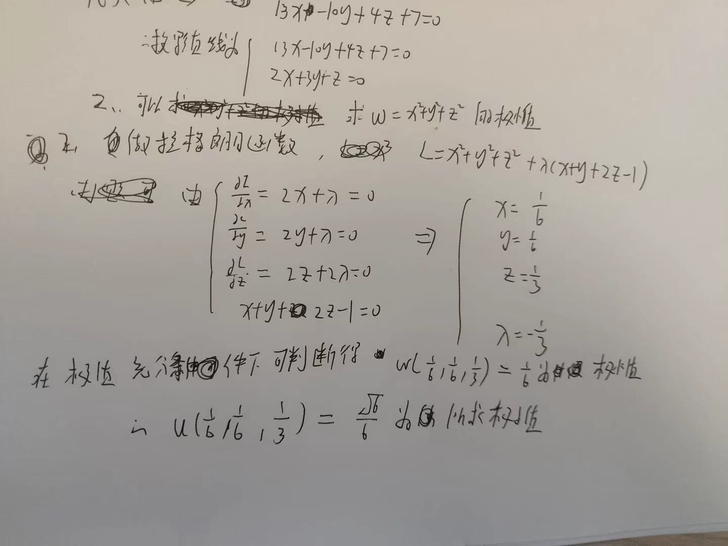 13x-10y+4z+7=0
∴投影直线为 { 13x-10y+4z+7=0
2x+3y+z=0
2、可以 求 w=x²+y²+z² 的极值
做拉格朗日函数, L=x²+y²+z²+λ(x+y+2z-1)
由 { ∂L/∂x = 2x+λ=0
∂L/∂y = 2y+λ=0
∂L/∂z = 2z+2λ=0
x+y+2z-1=0
⇒ { x=1/6
y=1/6
z=1/3
λ=-1/3
在极值充分条件下可判断得 w(1/6,1/6,1/3)=1/6为极小值
∴ u(1/6,1/6,1/3)=√6/6 为所求极值